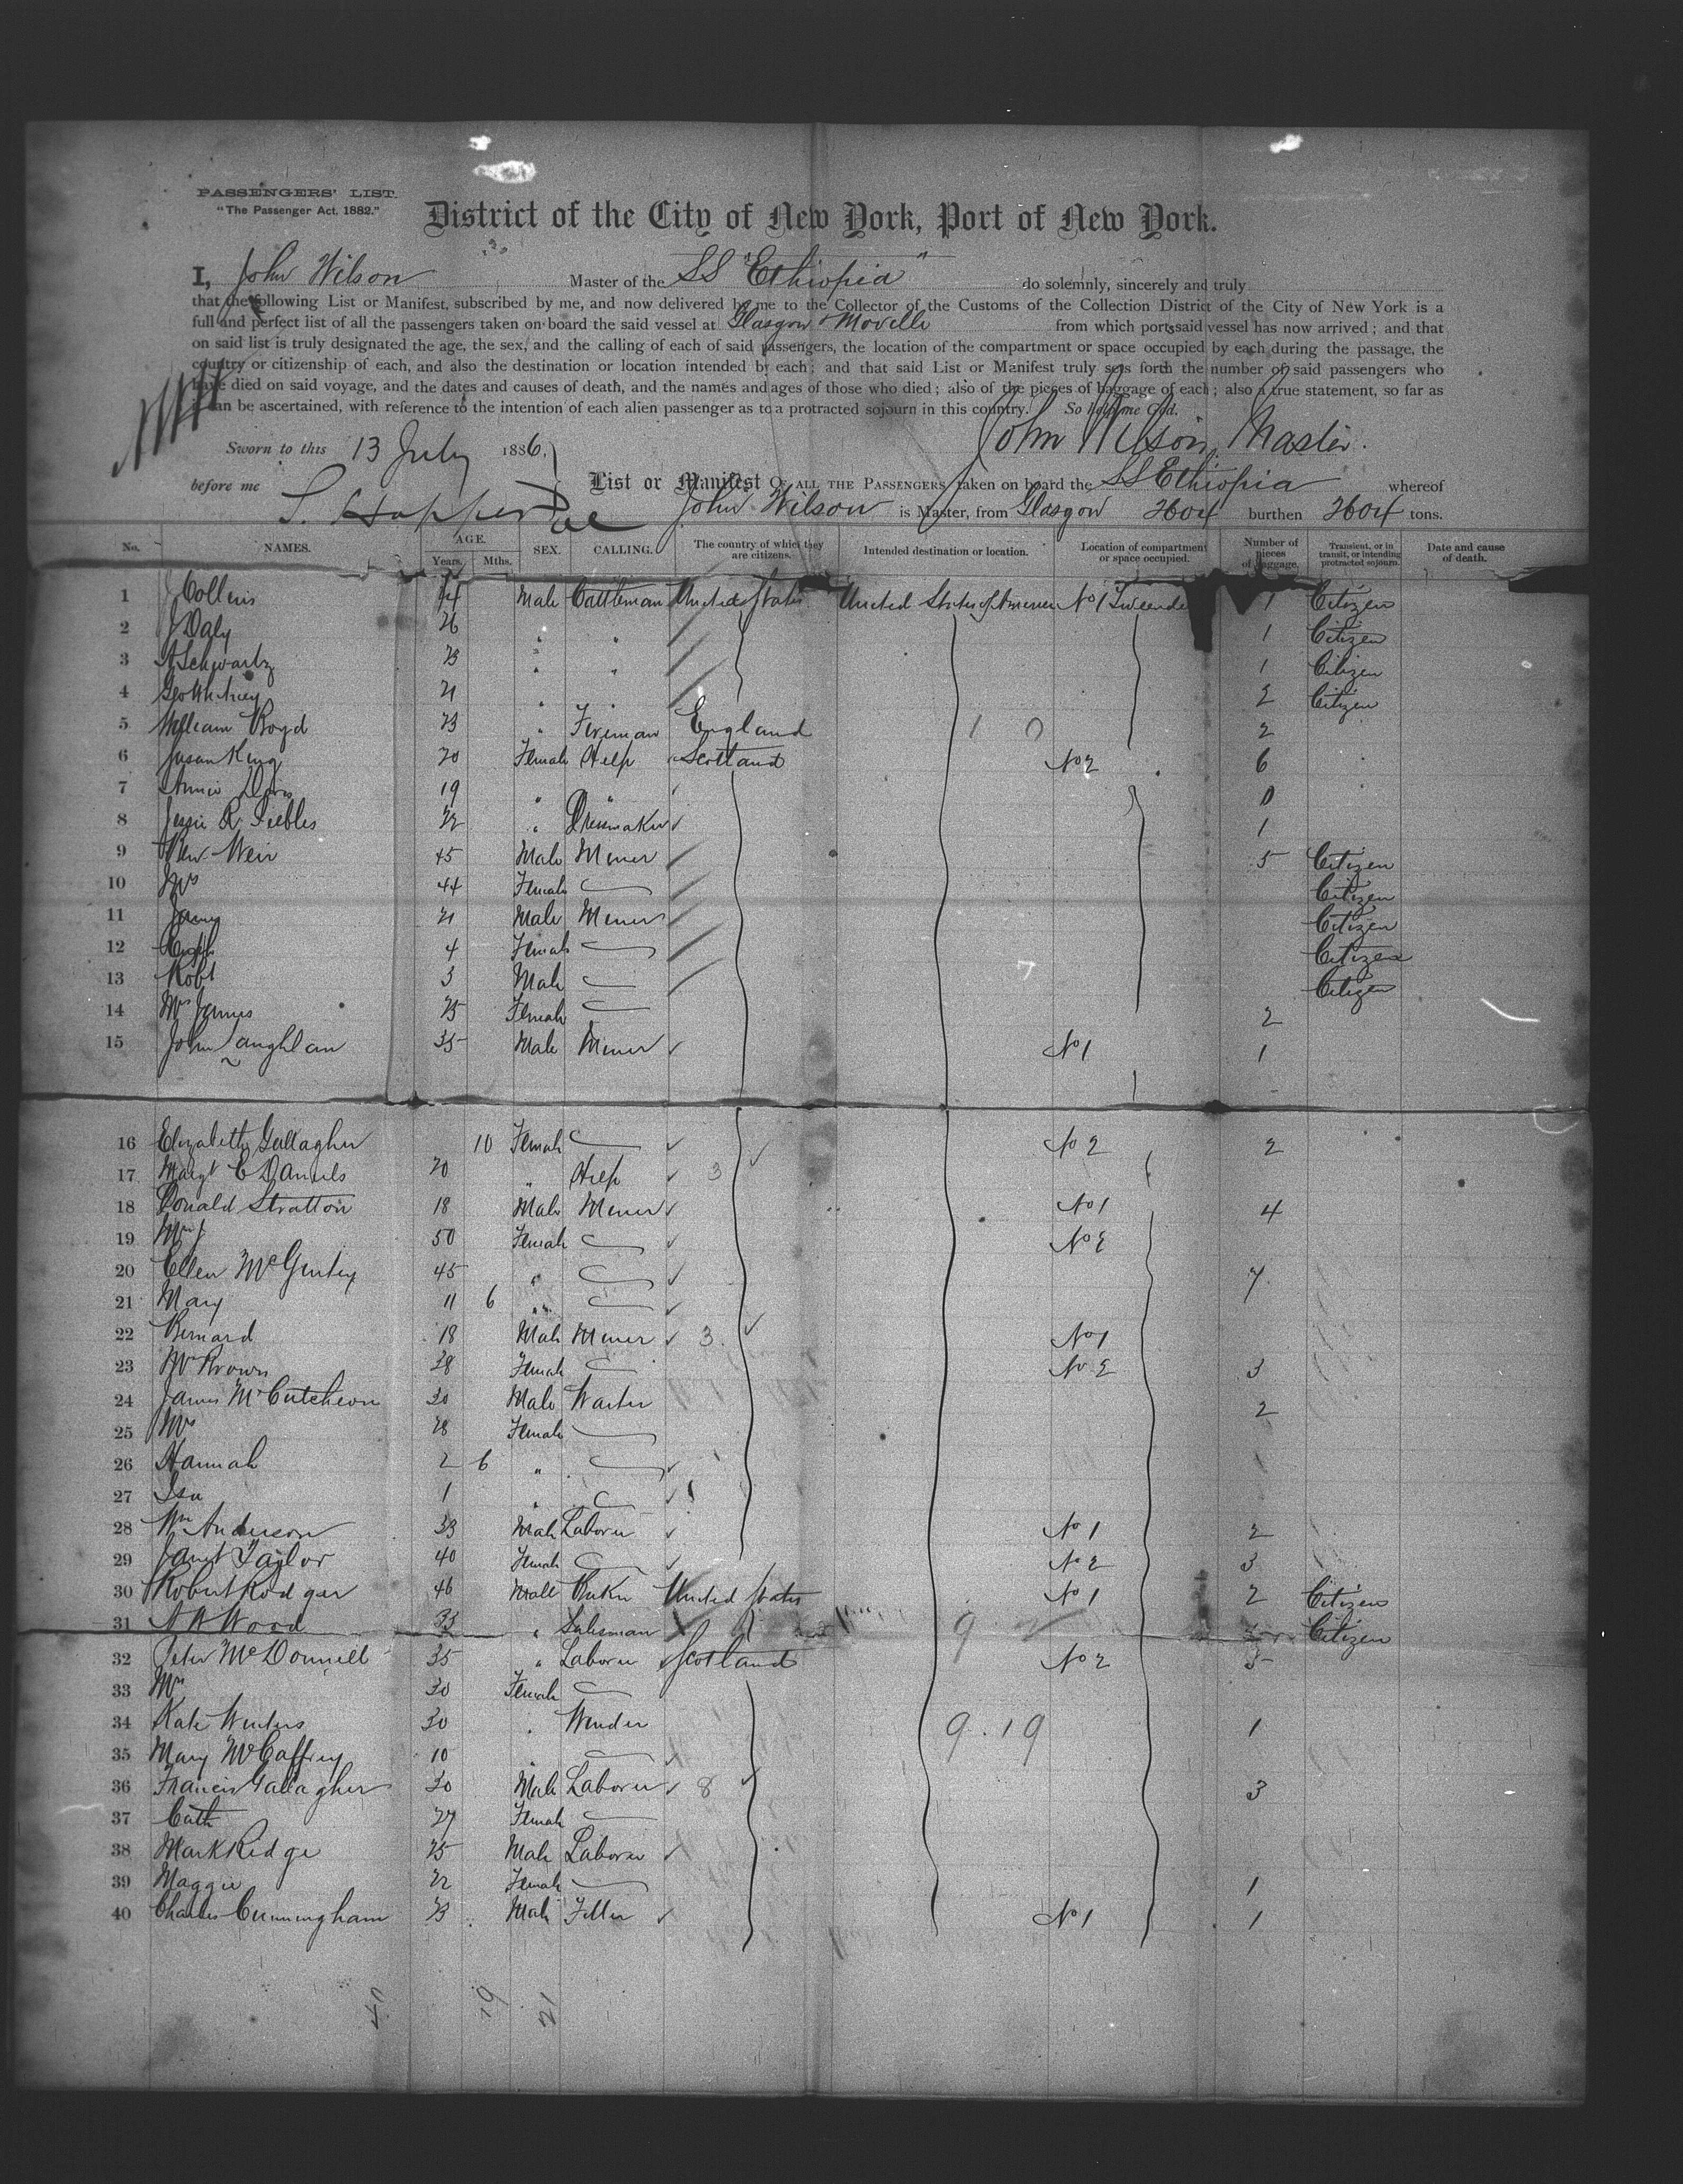 PASSENGERS' LIST.
"The Passenger Act, 1882."
District of the City of New York, Port of New York.
I, John Wilson Master of the SS "Ethiopia" do solemnly, sincerely and truly
that the following List or Manifest, subscribed by me, and now delivered by me to the Collector of the Customs of the Collection District of the City of New York is a
full and perfect list of all the passengers taken on board the said vessel at Glasgow & Moville from which ports said vessel has now arrived; and that
on said list is truly designated the age, the sex, and the calling of each of said passengers, the location of the compartment or space occupied by each during the passage, the
country or citizenship of each, and also the destination or location intended by each; and that said List or Manifest truly sets forth the number of said passengers who
have died on said voyage, and the dates and causes of death, and the names and ages of those who died; also of the pieces of baggage of each; also a true statement, so far as
it can be ascertained, with reference to the intention of each alien passenger as to a protracted sojourn in this country. So help me God.
John Wilson, Master.
Sworn to this 13 July 1886,
before me
List or Manifest OF ALL THE PASSENGERS taken on board the SS Ethiopia whereof
John Wilson is Master, from Glasgow 2604 burthen 2604 tons.
No. NAMES. AGE. Years. Mths. SEX. CALLING. The country of which they are citizens. Intended destination or location. Location of compartment or space occupied. Number of pieces of baggage. Transient, or in transit, or intending protracted sojourn. Date and cause of death.
1 J Collens Male Cattleman United States United States of America No 1 1 Citizen
2 J Daly 26 " " 1 Citizen
3 A Schwartz 23 " " 1 Citizen
4 21 " 2 Citizen
5 William Boyd 23 " Fireman England 2
6 Susan King 20 Female Help Scotland No 2 6
7 Annie 19 " "
8 Jessie R Peebles 22 " Dressmaker 1
9 Weir 45 Male Miner 5 Citizen
10 Mrs 44 Female Citizen
11 James 21 Male Miner Citizen
12 4 Female Citizen
13 Robt 3 Male Citizen
14 Mrs James 25 Female 2
15 John Laughlan 35 Male Miner No 1 1
16 Elizabeth Gallagher 10 Female No 2 2
17 Margt C Daniels 20 " Help 3
18 Donald Stratton 18 Male Miner No 1 4
19 Mrs J 50 Female No 2
20 Ellen McGinty 45 " 7
21 Mary 11 6 "
22 Bernard 18 Male Miner 3 No 1
23 Mrs Brown 28 Female No 2 3
24 James McCutcheon 30 Male Waiter 2
25 Mrs 28 Female
26 Hannah 2 6 "
27 Isa 1 "
28 Wm Anderson 33 Male Laborer No 1 2
29 Janet Taylor 40 Female No 2 3
30 Robert Rodger 46 Male United States No 1 2 Citizen
31 Wood 33 " Salesman 9 Citizen
32 Peter McDonnell 35 " Laborer Scotland No 2 5
33 Mrs 30 Female
34 Kate Winters 30 " Winder 9.19 1
35 Mary McCaffrey 10 "
36 Francis Gallagher 30 Male Laborer 8 3
37 Cath 27 Female
38 Mark Ridge 25 Male Laborer
39 Maggie 22 Female 1
40 Charles Cunningham 23 Male No 1 1
19 21